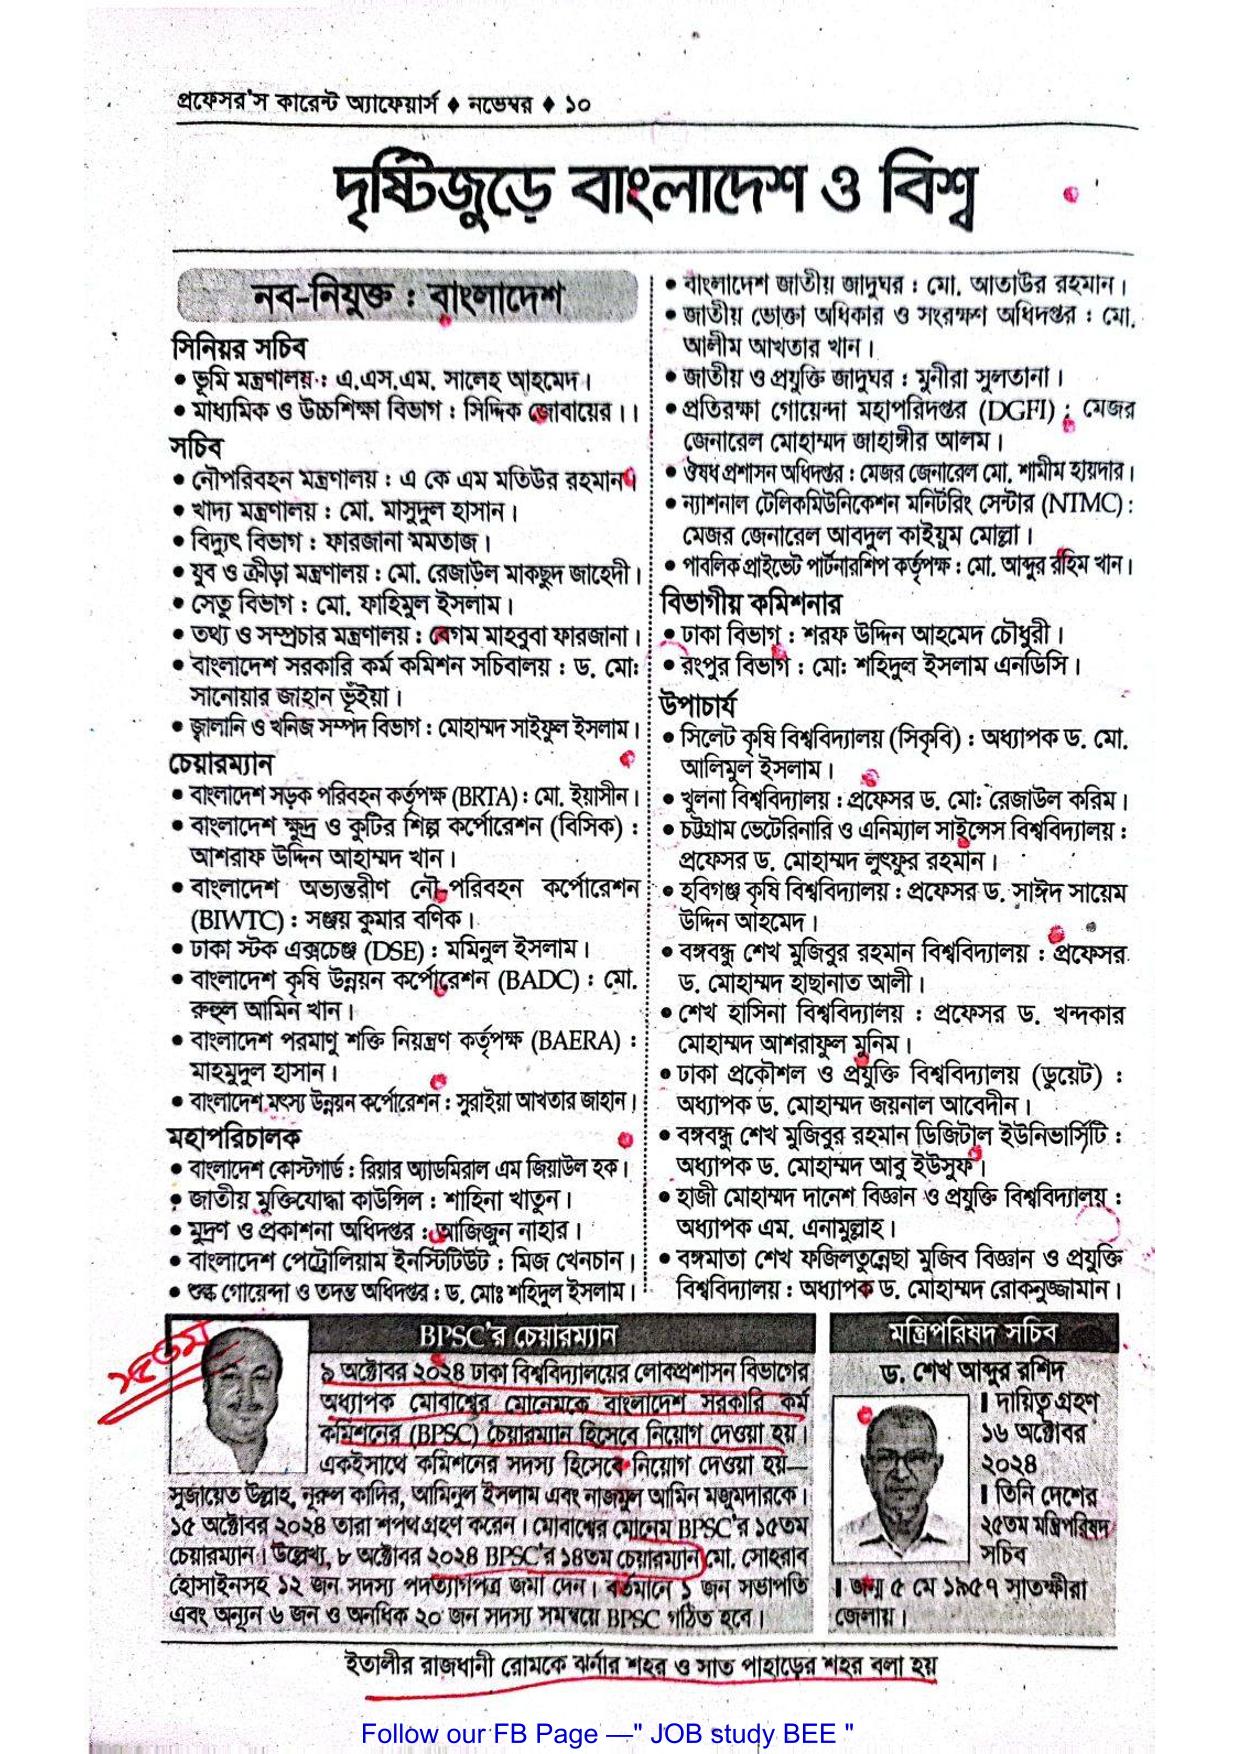 প্রফেসর'স কারেন্ট অ্যাফেয়ার্স ♦ নভেম্বর ♦ ১০
দৃষ্টিজুড়ে বাংলাদেশ ও বিশ্ব
নব-নিযুক্ত : বাংলাদেশ
সিনিয়র সচিব
• ভূমি মন্ত্রণালয় : এ.এস.এম. সালেহ আহমেদ।
• মাধ্যমিক ও উচ্চশিক্ষা বিভাগ : সিদ্দিক জোবায়ের।।
সচিব
• নৌপরিবহন মন্ত্রণালয় : এ কে এম মতিউর রহমান।
• খাদ্য মন্ত্রণালয় : মো. মাসুদুল হাসান।
• বিদ্যুৎ বিভাগ : ফারজানা মমতাজ।
• যুব ও ক্রীড়া মন্ত্রণালয় : মো. রেজাউল মাকছুদ জাহেদী।
• সেতু বিভাগ : মো. ফাহিমুল ইসলাম।
• তথ্য ও সম্প্রচার মন্ত্রণালয় : বেগম মাহবুবা ফারজানা।
• বাংলাদেশ সরকারি কর্ম কমিশন সচিবালয় : ড. মো:
সানোয়ার জাহান ভূঁইয়া।
• জ্বালানি ও খনিজ সম্পদ বিভাগ : মোহাম্মদ সাইফুল ইসলাম।
চেয়ারম্যান
• বাংলাদেশ সড়ক পরিবহন কর্তৃপক্ষ (BRTA) : মো. ইয়াসীন।
• বাংলাদেশ ক্ষুদ্র ও কুটির শিল্প কর্পোরেশন (বিসিক) :
আশরাফ উদ্দিন আহাম্মদ খান।
• বাংলাদেশ অভ্যন্তরীণ নৌ-পরিবহন কর্পোরেশন
(BIWTC) : সঞ্জয় কুমার বণিক।
• ঢাকা স্টক এক্সচেঞ্জ (DSE) : মমিনুল ইসলাম।
• বাংলাদেশ কৃষি উন্নয়ন কর্পোরেশন (BADC) : মো.
রুহুল আমিন খান।
• বাংলাদেশ পরমাণু শক্তি নিয়ন্ত্রণ কর্তৃপক্ষ (BAERA) :
মাহমুদুল হাসান।
• বাংলাদেশ মৎস্য উন্নয়ন কর্পোরেশন : সুরাইয়া আখতার জাহান।
মহাপরিচালক
• বাংলাদেশ কোস্টগার্ড : রিয়ার অ্যাডমিরাল এম জিয়াউল হক।
• জাতীয় মুক্তিযোদ্ধা কাউন্সিল : শাহিনা খাতুন।
• মুদ্রণ ও প্রকাশনা অধিদপ্তর : আজিজুন নাহার।
• বাংলাদেশ পেট্রোলিয়াম ইনস্টিটিউট : মিজ খেনচান।
• শুল্ক গোয়েন্দা ও তদন্ত অধিদপ্তর : ড. মোঃ শহিদুল ইসলাম।
• বাংলাদেশ জাতীয় জাদুঘর : মো. আতাউর রহমান।
• জাতীয় ভোক্তা অধিকার ও সংরক্ষণ অধিদপ্তর : মো.
আলীম আখতার খান।
• জাতীয় ও প্রযুক্তি জাদুঘর : মুনীরা সুলতানা।
• প্রতিরক্ষা গোয়েন্দা মহাপরিদপ্তর (DGFI) : মেজর
জেনারেল মোহাম্মদ জাহাঙ্গীর আলম।
• ঔষধ প্রশাসন অধিদপ্তর : মেজর জেনারেল মো. শামীম হায়দার।
• ন্যাশনাল টেলিকমিউনিকেশন মনিটরিং সেন্টার (NTMC) :
মেজর জেনারেল আবদুল কাইয়ুম মোল্লা।
• পাবলিক প্রাইভেট পার্টনারশিপ কর্তৃপক্ষ : মো. আব্দুর রহিম খান।
বিভাগীয় কমিশনার
• ঢাকা বিভাগ : শরফ উদ্দিন আহমেদ চৌধুরী।
• রংপুর বিভাগ : মো: শহিদুল ইসলাম এনডিসি।
উপাচার্য
• সিলেট কৃষি বিশ্ববিদ্যালয় (সিকৃবি) : অধ্যাপক ড. মো.
আলিমুল ইসলাম।
• খুলনা বিশ্ববিদ্যালয় : প্রফেসর ড. মো: রেজাউল করিম।
• চট্টগ্রাম ভেটেরিনারি ও এনিম্যাল সাইন্সেস বিশ্ববিদ্যালয় :
প্রফেসর ড. মোহাম্মদ লুৎফুর রহমান।
• হবিগঞ্জ কৃষি বিশ্ববিদ্যালয় : প্রফেসর ড. সাঈদ সায়েম
উদ্দিন আহমেদ।
• বঙ্গবন্ধু শেখ মুজিবুর রহমান বিশ্ববিদ্যালয় : প্রফেসর
ড. মোহাম্মদ হাছানাত আলী।
• শেখ হাসিনা বিশ্ববিদ্যালয় : প্রফেসর ড. খন্দকার
মোহাম্মদ আশরাফুল মুনিম।
• ঢাকা প্রকৌশল ও প্রযুক্তি বিশ্ববিদ্যালয় (ডুয়েট) :
অধ্যাপক ড. মোহাম্মদ জয়নাল আবেদীন।
• বঙ্গবন্ধু শেখ মুজিবুর রহমান ডিজিটাল ইউনিভার্সিটি :
অধ্যাপক ড. মোহাম্মদ আবু ইউসুফ।
• হাজী মোহাম্মদ দানেশ বিজ্ঞান ও প্রযুক্তি বিশ্ববিদ্যালয় :
অধ্যাপক এম. এনামুল্লাহ।
• বঙ্গমাতা শেখ ফজিলতুন্নেছা মুজিব বিজ্ঞান ও প্রযুক্তি
বিশ্ববিদ্যালয় : অধ্যাপক ড. মোহাম্মদ রোকনুজ্জামান।
১৫তম
BPSC'র চেয়ারম্যান
৯ অক্টোবর ২০২৪ ঢাকা বিশ্ববিদ্যালয়ের লোকপ্রশাসন বিভাগের
অধ্যাপক মোবাশ্বের মোনেমকে বাংলাদেশ সরকারি কর্ম
কমিশনের (BPSC) চেয়ারম্যান হিসেবে নিয়োগ দেওয়া হয়।
একইসাথে কমিশনের সদস্য হিসেবে নিয়োগ দেওয়া হয়—
সুজায়েত উল্লাহ, নূরুল কাদির, আমিনুল ইসলাম এবং নাজমুল আমিন মজুমদারকে।
১৫ অক্টোবর ২০২৪ তারা শপথ গ্রহণ করেন। মোবাশ্বের মোনেম BPSC'র ১৫তম
চেয়ারম্যান। উল্লেখ্য, ৮ অক্টোবর ২০২৪ BPSC'র ১৪তম চেয়ারম্যান মো. সোহরাব
হোসাইনসহ ১২ জন সদস্য পদত্যাগপত্র জমা দেন। বর্তমানে ১ জন সভাপতি
এবং অন্যূন ৬ জন ও অনধিক ২০ জন সদস্য সমন্বয়ে BPSC গঠিত হবে।
মন্ত্রিপরিষদ সচিব
ড. শেখ আব্দুর রশিদ
। দায়িত্ব গ্রহণ
১৬ অক্টোবর
২০২৪
। তিনি দেশের
২৫তম মন্ত্রিপরিষদ
সচিব
। জন্ম ৫ মে ১৯৫৭ সাতক্ষীরা
জেলায়।
ইতালীর রাজধানী রোমকে ঝর্নার শহর ও সাত পাহাড়ের শহর বলা হয়
Follow our FB Page —" JOB study BEE "